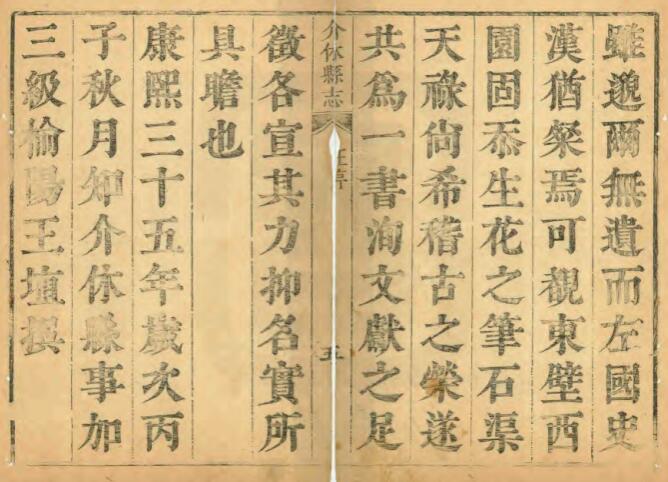 雖邈爾無遺而左國史
漢猶粲焉可覩東壁西
園固忝生花之筆石渠
天祿尙希稽古之榮遂
共爲一書洵文獻之足
介休縣志
王序
五
徵各宣其力抑名實所
具瞻也
康熙三十五年歲次丙
子秋月知介休縣事加
三級榆陽王埴撰